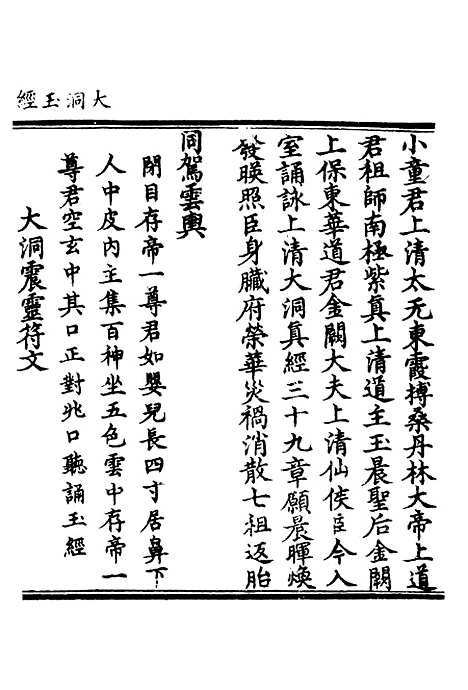 大洞玉經
小童君上清太无東霞搏桑丹林大帝上道
君祖師南極紫真上清道主玉晨聖后金闕
上保東華道君金闕大夫上清仙侯臣今入
室誦詠上清大洞真經三十九章願晨暉煥
發暎照臣身臟府榮華災禍消散七祖返胎
同駕雲輿
閉目存帝一尊君如嬰兒長四寸居鼻下
人中皮內主集百神坐五色雲中存帝一
尊君空玄中其口正對兆口聽誦玉經
大洞震靈符文